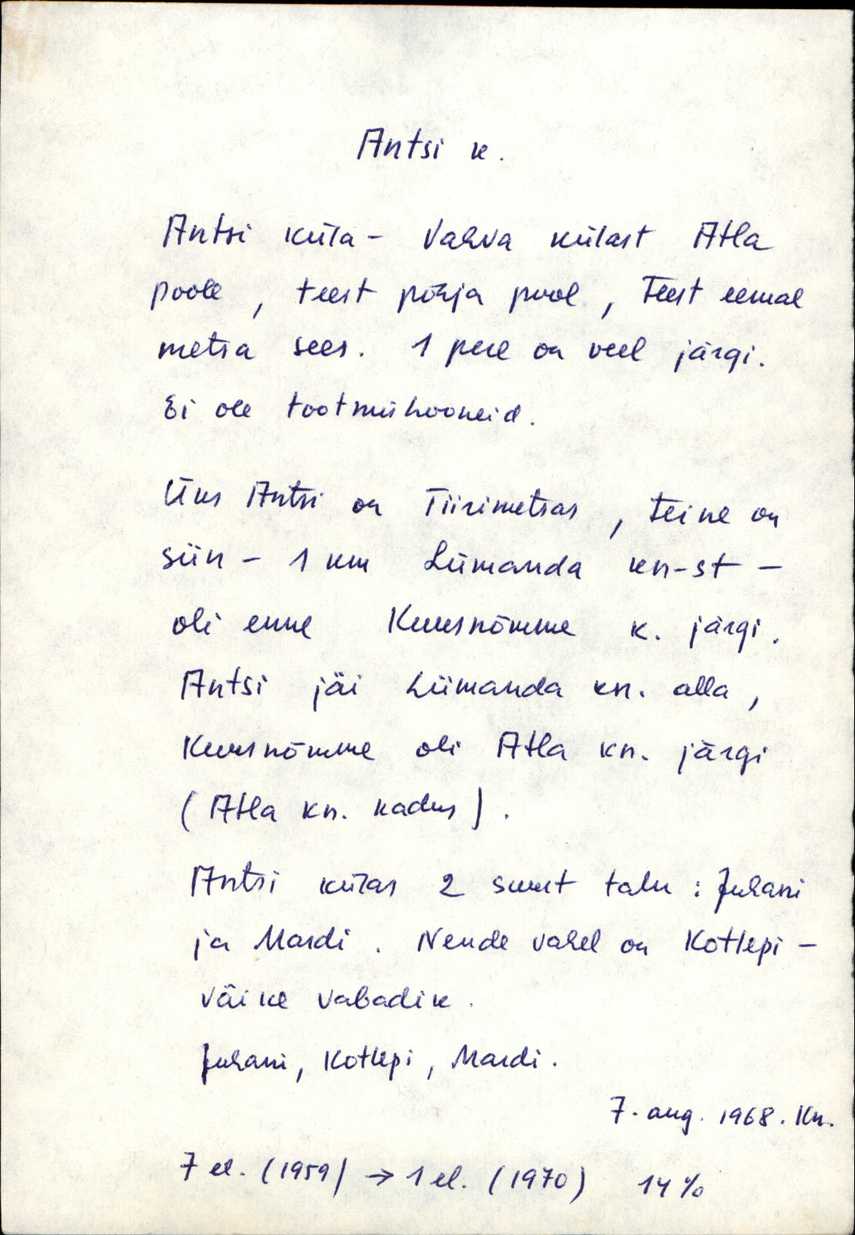 Antsi k.
Antsi küla - Vahva külast Atla
poole, teest põhja pool, Teest eemal
metsa sees. 1 pere on veel järgi.
Ei ole tootmishooneid.
Üks Antsi on Tiirimetsas, teine on
siin - 1 km Lümanda kn-st -
oli enne Kuusnõmme k. järgi.
Antsi jäi Lümanda kn. alla,
Kuusnõmme oli Atla kn. järgi
(Atla kn. kadus).
Antsi külas 2 suurt talu: Juhani
ja Mardi. Nende vahel on Kotlepi -
väike vabadik.
Juhani, Kotlepi, Mardi.
7. aug. 1968. Kn.
7 el. (1959) → 1 el. (1970) 14%